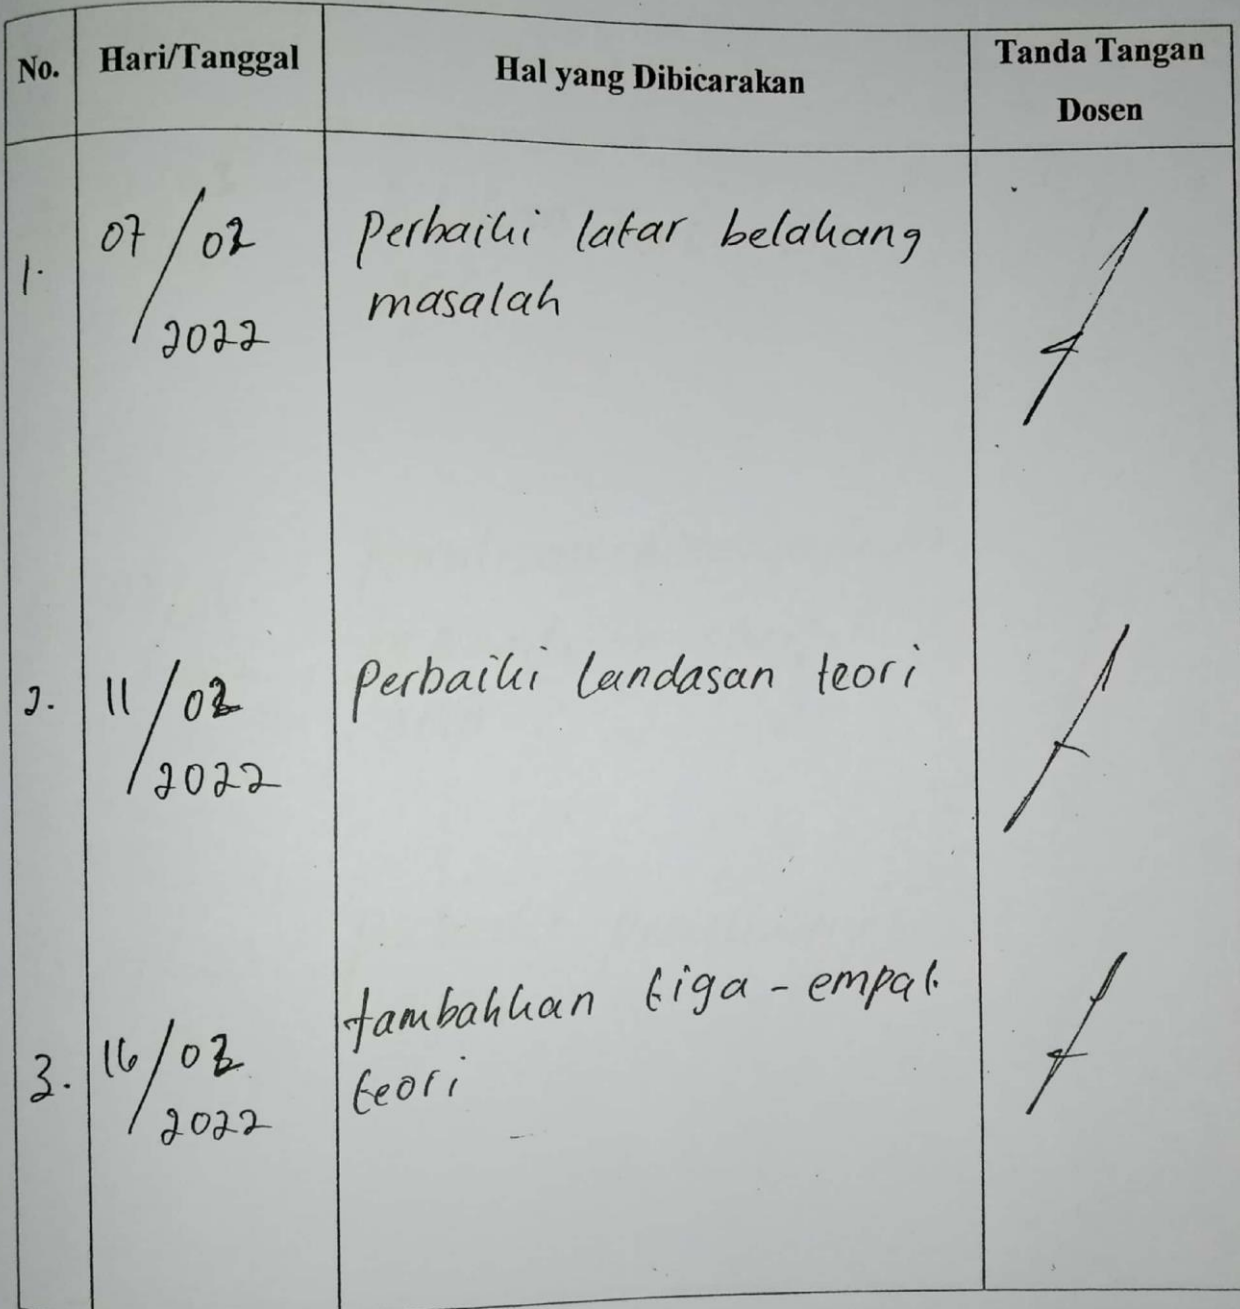 No. Hari/Tanggal Hal yang Dibicarakan Tanda Tangan
Dosen
1. 07/02 Perbaiki latar belakang
2022 masalah
2. 11/02 Perbaiki landasan teori
2022
3. 16/02 tambahkan tiga-empat
2022 teori